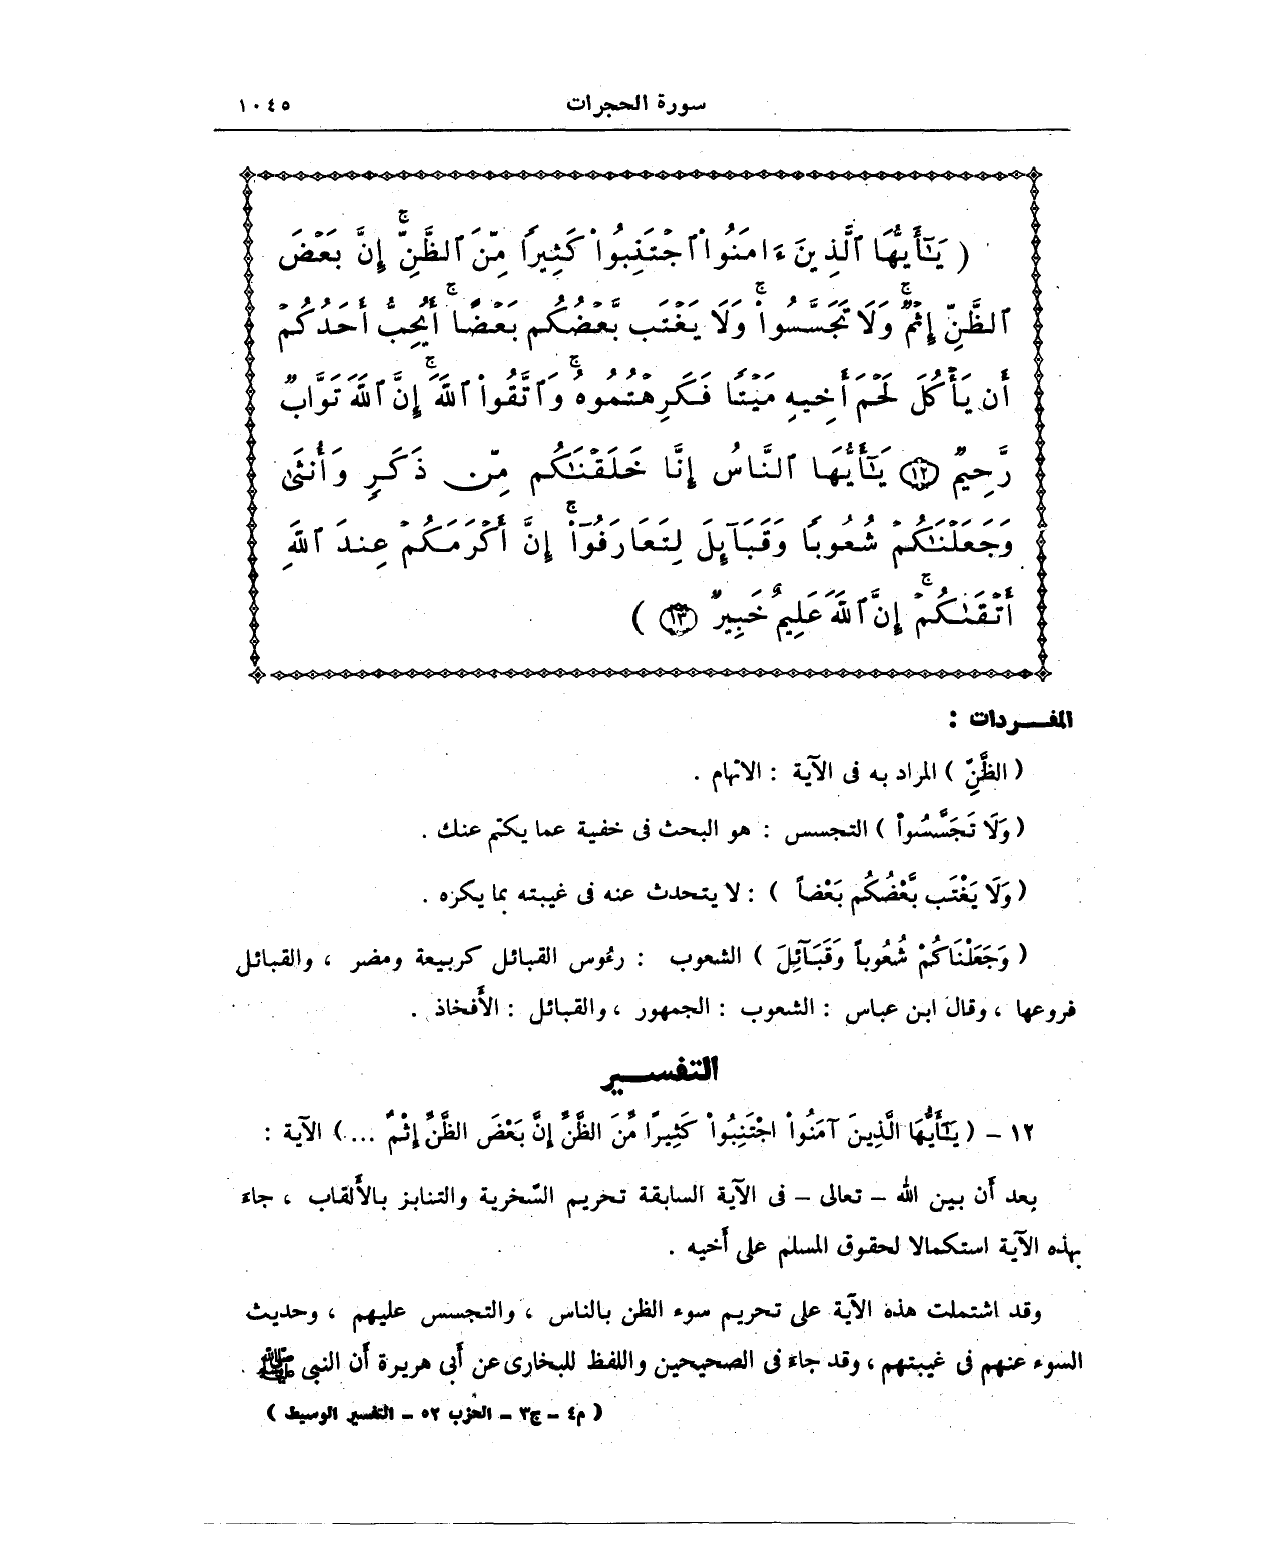 سورة الحجرات ١٠٤٥
( يَـٰٓأَيُّهَا ٱلَّذِينَ ءَامَنُوا۟ ٱجْتَنِبُوا۟ كَثِيرًا مِّنَ ٱلظَّنِّ ۚ إِنَّ بَعْضَ
ٱلظَّنِّ إِثْمٌ ۚ وَلَا تَجَسَّسُوا۟ ۚ وَلَا يَغْتَب بَّعْضُكُم بَعْضًا ۚ أَيُحِبُّ أَحَدُكُمْ
أَن يَأْكُلَ لَحْمَ أَخِيهِ مَيْتًا فَكَرِهْتُمُوهُ ۚ وَٱتَّقُوا۟ ٱللَّهَ ۚ إِنَّ ٱللَّهَ تَوَّابٌ
رَّحِيمٌ ١٢ يَـٰٓأَيُّهَا ٱلنَّاسُ إِنَّا خَلَقْنَـٰكُم مِّن ذَكَرٍ وَأُنثَىٰ
وَجَعَلْنَـٰكُمْ شُعُوبًا وَقَبَآئِلَ لِتَعَارَفُوٓا۟ ۚ إِنَّ أَكْرَمَكُمْ عِندَ ٱللَّهِ
أَتْقَىٰكُمْ ۚ إِنَّ ٱللَّهَ عَلِيمٌ خَبِيرٌ ١٣ )
المفـــردات :
( الظَّنِّ ) المراد به فى الآية : الاتهام .
( وَلَا تَجَسَّسُواْ ) التجسس : هو البحث فى خفية عما يكتم عنك .
( وَلَا يَغْتَب بَّعْضُكُم بَعْضاً ) : لا يتحدث عنه فى غيبته بما يكره .
( وَجَعَلْنَاكُمْ شُعُوباً وَقَبَآئِلَ ) الشعوب : رءُوس القبائل كربيعة ومضر ، والقبائل
فروعها ، وقال ابن عباس : الشعوب : الجمهور ، والقبائل : الأَفخاذ .
التفســـير
١٢ – ( يَـٰٓأَيُّهَا الَّذِينَ آمَنُواْ اجْتَنِبُواْ كَثِيرًا مِّنَ الظَّنِّ إِنَّ بَعْضَ الظَّنِّ إِثْمٌ ... ) الآية :
بعد أَن بين الله – تعالى – فى الآية السابقة تحريم السّخرية والتنابز بالأَلقاب ، جاءَ
بهذه الآية استكمالا لحقوق المسلم على أَخيه .
وقد اشتملت هذه الآية على تحريم سوء الظن بالناس ، والتجسس عليهم ، وحديث
السوء عنهم فى غيبتهم ، وقد جاءَ فى الصحيحين واللفظ للبخارى عن أَبى هريرة أَن النبى ﷺ .
( م٤ – ج٣ – الحزب ٥٢ – التفسير الوسيط )